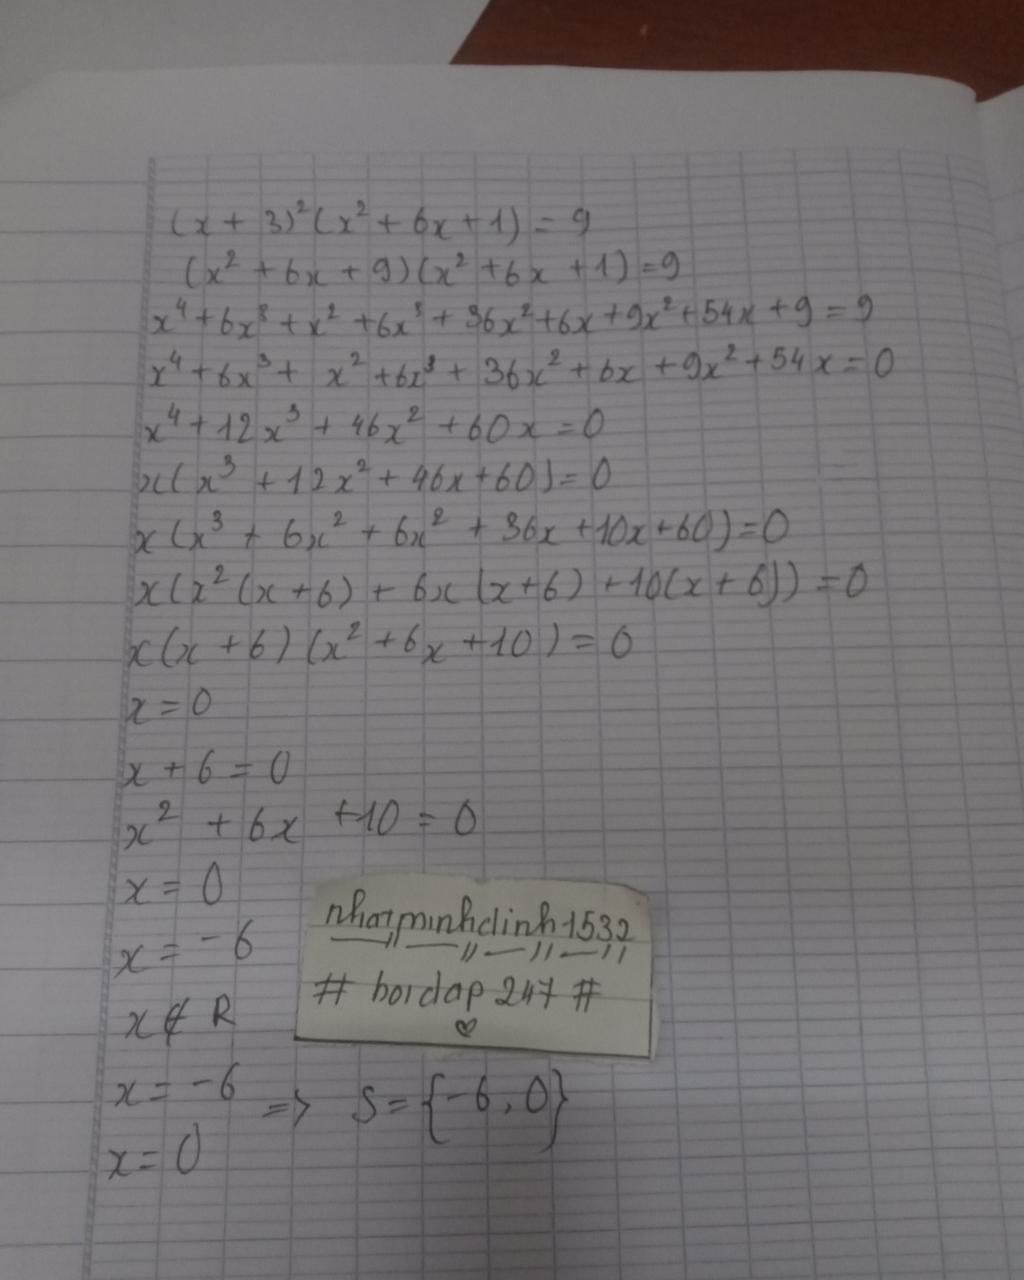 (x + 3)²(x² + 6x + 1) = 9
(x² + 6x + 9)(x² + 6x + 1) = 9
x⁴ + 6x³ + x² + 6x³ + 36x² + 6x + 9x² + 54x + 9 = 9
x⁴ + 6x³ + x² + 6x³ + 36x² + 6x + 9x² + 54x = 0
x⁴ + 12x³ + 46x² + 60x = 0
x(x³ + 12x² + 46x + 60) = 0
x(x³ + 6x² + 6x² + 36x + 10x + 60) = 0
x(x²(x + 6) + 6x(x + 6) + 10(x + 6)) = 0
x(x + 6)(x² + 6x + 10) = 0
x = 0
x + 6 = 0
x² + 6x + 10 = 0
x = 0
x = -6
x ∉ R
x = -6
x = 0
=> S = {-6, 0}
nhatminhdinh1532
# hoidap 247 #